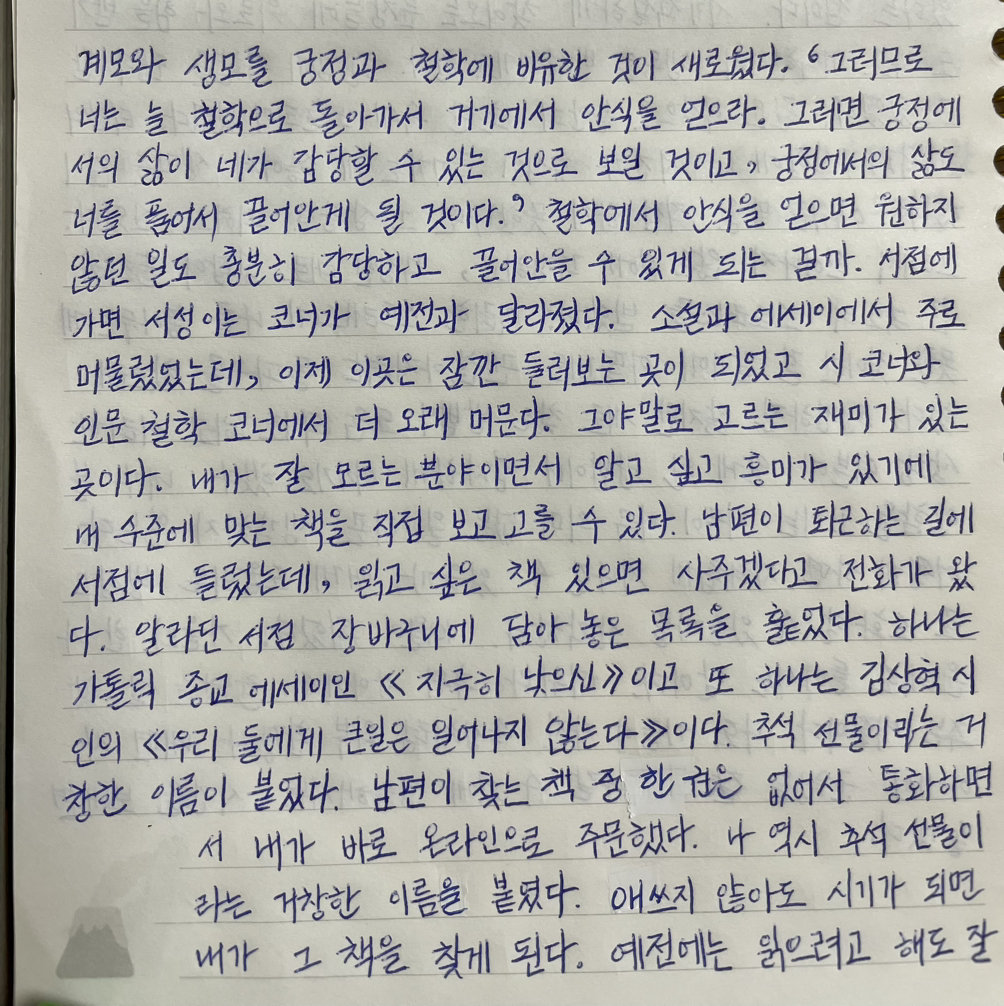 계모와 생모를 궁정과 철학에 비유한 것이 새로웠다. ‘그러므로
너는 늘 철학으로 돌아가서 거기에서 안식을 얻으라. 그러면 궁정에
서의 삶이 네가 감당할 수 있는 것으로 보일 것이고, 궁정에서의 삶도
너를 품어서 끌어안게 될 것이다.’ 철학에서 안식을 얻으면 원하지
않던 일도 충분히 감당하고, 끌어안을 수 있게 되는 걸까. 서점에
가면 서성이는 코너가 예전과 달라졌다. 소설과 에세이에서 주로
머물렀었는데, 이제 이곳은 잠깐 들러보는 곳이 되었고 시 코너와
인문 철학 코너에서 더 오래 머문다. 그야말로 고르는 재미가 있는
곳이다. 내가 잘 모르는 분야이면서 알고 싶고 흥미가 있기에
내 수준에 맞는 책을 직접 보고 고를 수 있다. 남편이 퇴근하는 길에
서점에 들렀는데, 읽고 싶은 책 있으면 사주겠다고 전화가 왔
다. 알라딘 서점 장바구니에 담아 놓은 목록을 훑었다. 하나는
가톨릭 종교 에세이인 《지극히 낮으신》이고 또 하나는 김상혁 시
인의 《우리 둘에게 큰일은 일어나지 않는다》이다. 추석 선물이라는 거
창한 이름이 붙었다. 남편이 찾는 책 중 한 권은 없어서 통화하면
서 내가 바로 온라인으로 주문했다. 나 역시 추석 선물이
라는 거창한 이름을 붙였다. 애쓰지 않아도 시기가 되면
내가 그 책을 찾게 된다. 예전에는 읽으려고 해도 잘